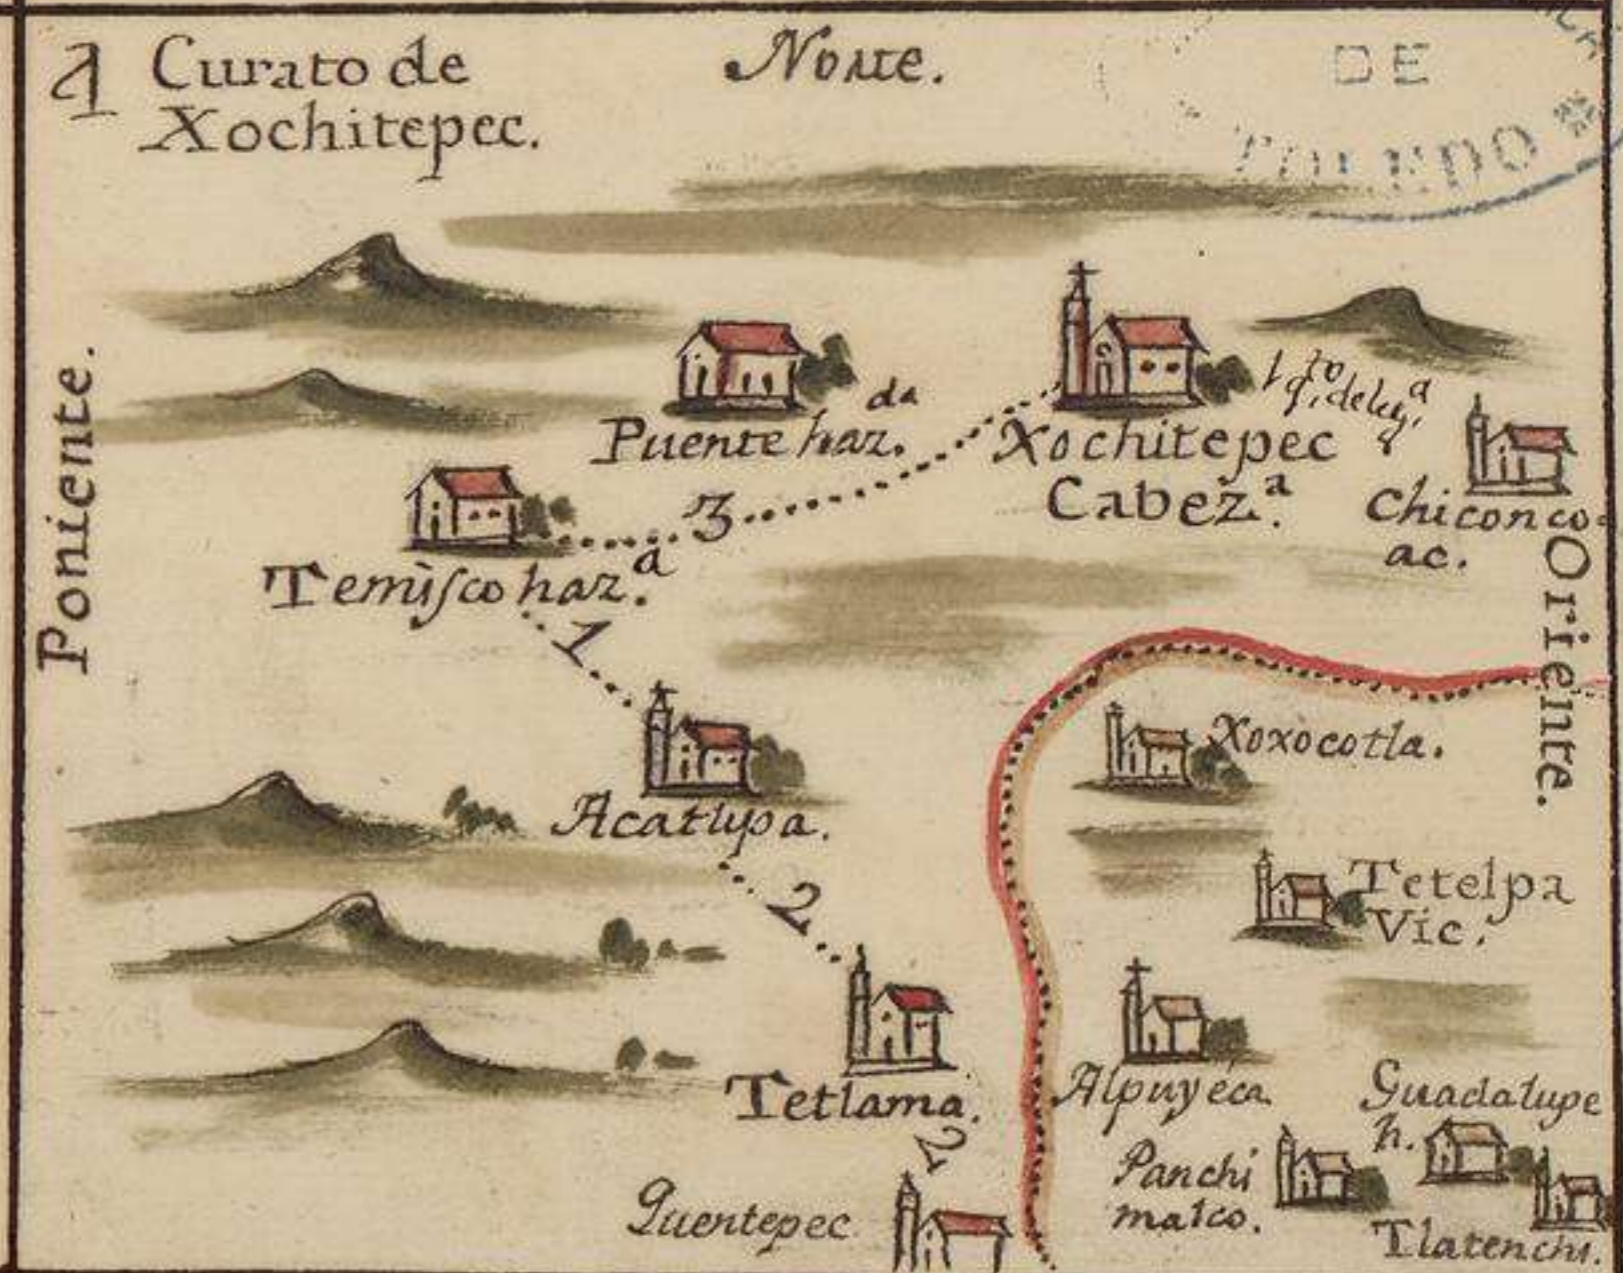 A Curato de
Xochitepec.
Norte.
DE
TOLEDO
Poniente.
Oriente.
Puente haz.da
Xochitepec
Cabez.a
Chiconco-
ac.
3
Temisco haz.a
1
Acatlypa.
Xoxocotla.
2
Tetelpa
Vic.
Tetlama.
Alpuyeca
2
Guadalupe
h.
Panchi
malco.
Quentepec
Tlatenchi.